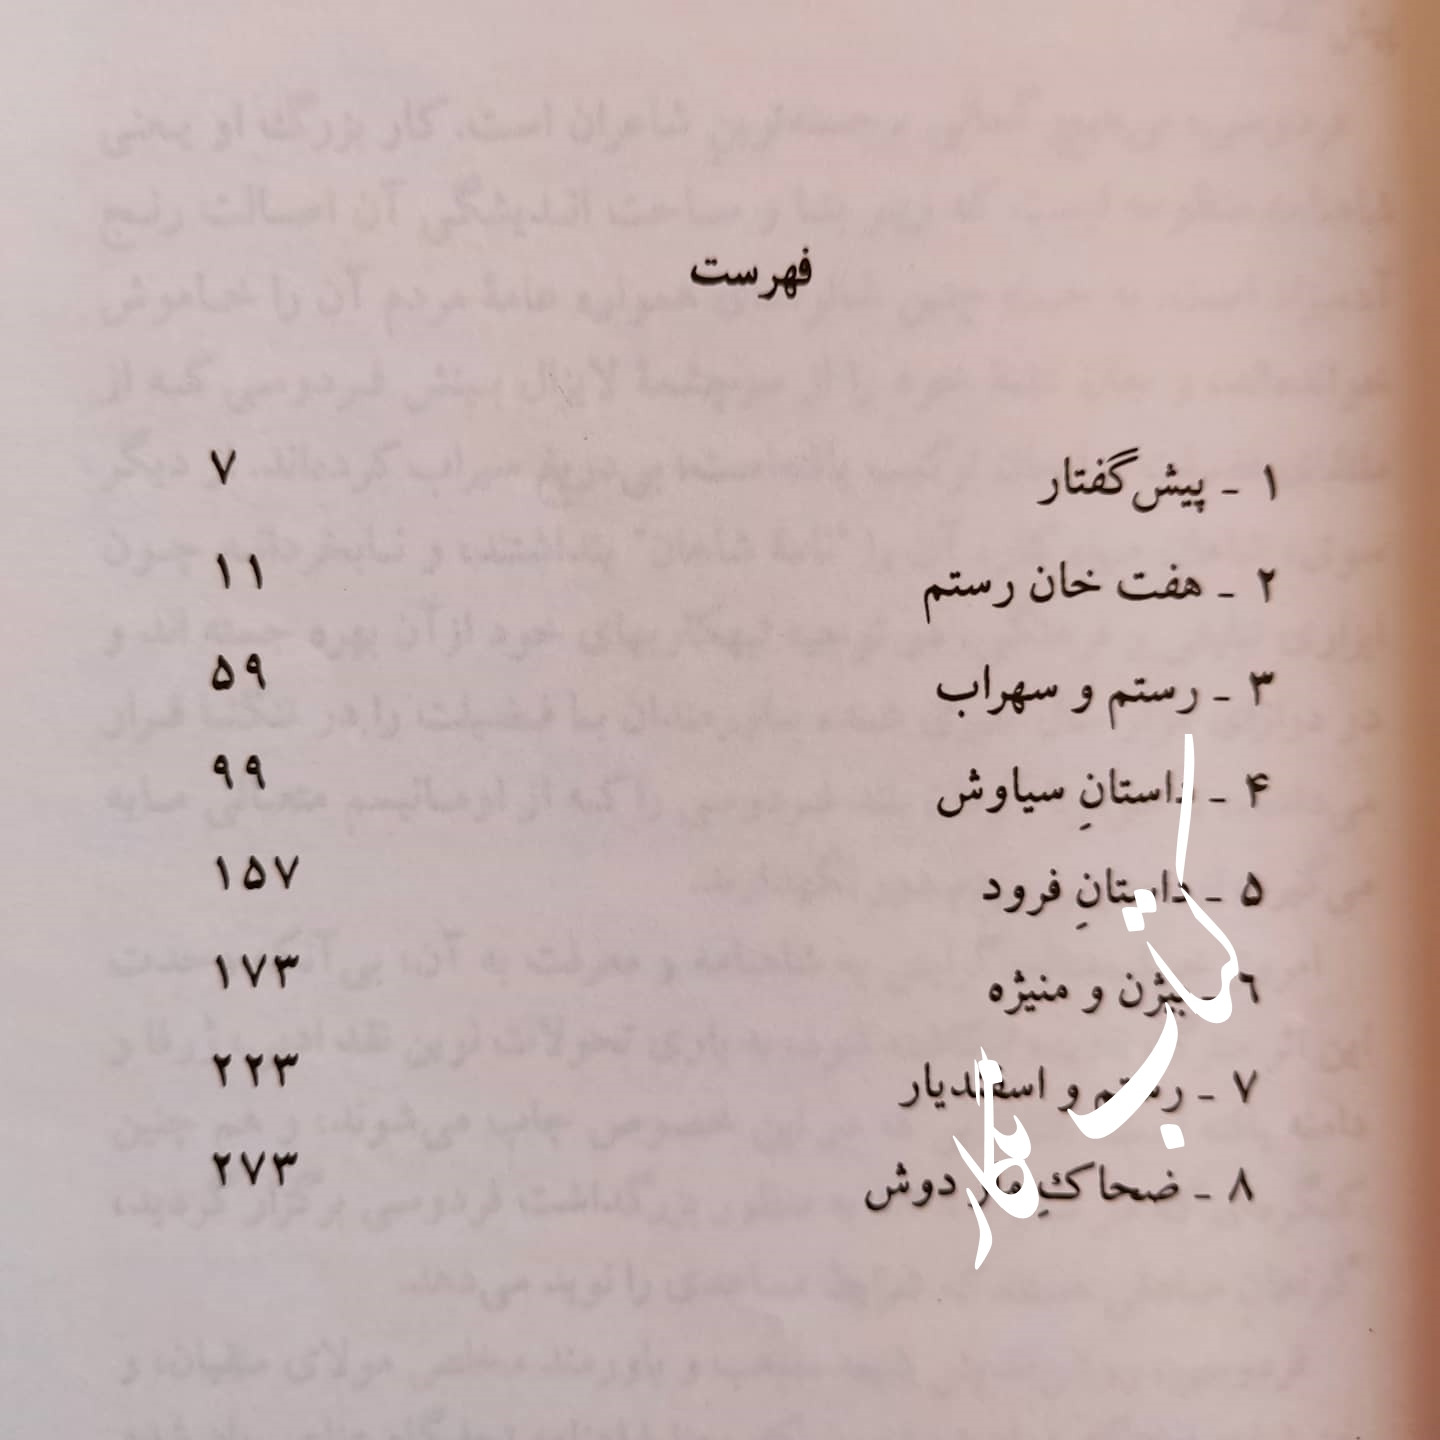 فهرست
۱ - پیش‌گفتار ۷
۲ - هفت خان رستم ۱۱
۳ - رستم و سهراب ۵۹
۴ - داستانِ سیاوش ۹۹
۵ - داستانِ فرود ۱۵۷
۶ - بیژن و منیژه ۱۷۳
۷ - رستم و اسفندیار ۲۲۳
۸ - ضحاکِ مار دوش ۲۷۳
کتاب نگار